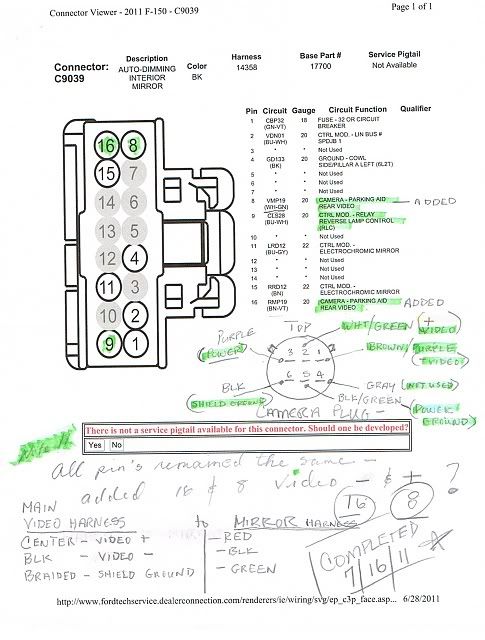 Connector Viewer - 2011 F-150 - C9039
Page 1 of 1
Connector: C9039
Description AUTO-DIMMING INTERIOR MIRROR
Color BK
Harness 14358
Base Part # 17700
Service Pigtail Not Available
Pin Circuit Gauge Circuit Function Qualifier
1 CBP32 (GN-VT) 18 FUSE - 32 OR CIRCUIT BREAKER
2 VDN01 (BU-WH) 20 CTRL MOD. - LIN BUS # SPDJB 1
3 * * Not Used
4 GD133 (BK) 20 GROUND - COWL SIDE/PILLAR A LEFT (6L2T)
5 * * Not Used
6 * * Not Used
7 * * Not Used
8 VMP19 (WH-GN) 20 CAMERA - PARKING AID REAR VIDEO - ADDED
9 CLS28 (BU-WH) 20 CTRL MOD. - RELAY REVERSE LAMP CONTROL (RLC)
10 * * Not Used
11 LRD12 (BU-GY) 22 CTRL MOD. - ELECTROCHROMIC MIRROR
12 * * Not Used
13 * * Not Used
14 * * Not Used
15 RRD12 (BN) 22 CTRL MOD. - ELECTROCHROMIC MIRROR
16 RMP19 (BN-VT) 20 CAMERA - PARKING AID REAR VIDEO ADDED
16 8
15 7
14 6
13 5
12 4
11 3
10 2
9 1
TOP
PURPLE (POWER)
WHT/GREEN (+ VIDEO)
BROWN/PURPLE (- VIDEO)
3 2 1
6 5 4
GRAY (NOT USED)
BLK (SHIELD GROUND)
BLK/GREEN (POWER GROUND)
CAMERA PLUG -
There is not a service pigtail available for this connector. Should one be developed?
Yes No
All pin's remained the same -
added 16 & 8 Video - & + ?
16 8
MAIN
VIDEO HARNESS to MIRROR HARNESS
CENTER - VIDEO + - RED
BLK - VIDEO - - BLK
BRAIDED - SHIELD GROUND - GREEN
COMPLETED
7/16/11
http://www.fordtechservice.dealerconnection.com/renderers/ie/wiring/svg/ep_c3p_face.asp... 6/28/2011